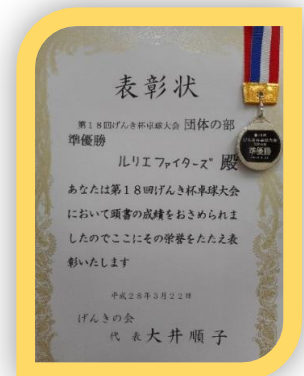 表彰状
第18回げんき杯卓球大会 団体の部
準優勝
ルリエファイターズ 殿
あなたは第18回げんき杯卓球大会
において頭書の成績をおさめられま
したのでここにその栄誉をたたえ表
彰いたします
平成28年5月22日
げんきの会
代表 大井順子
準優勝